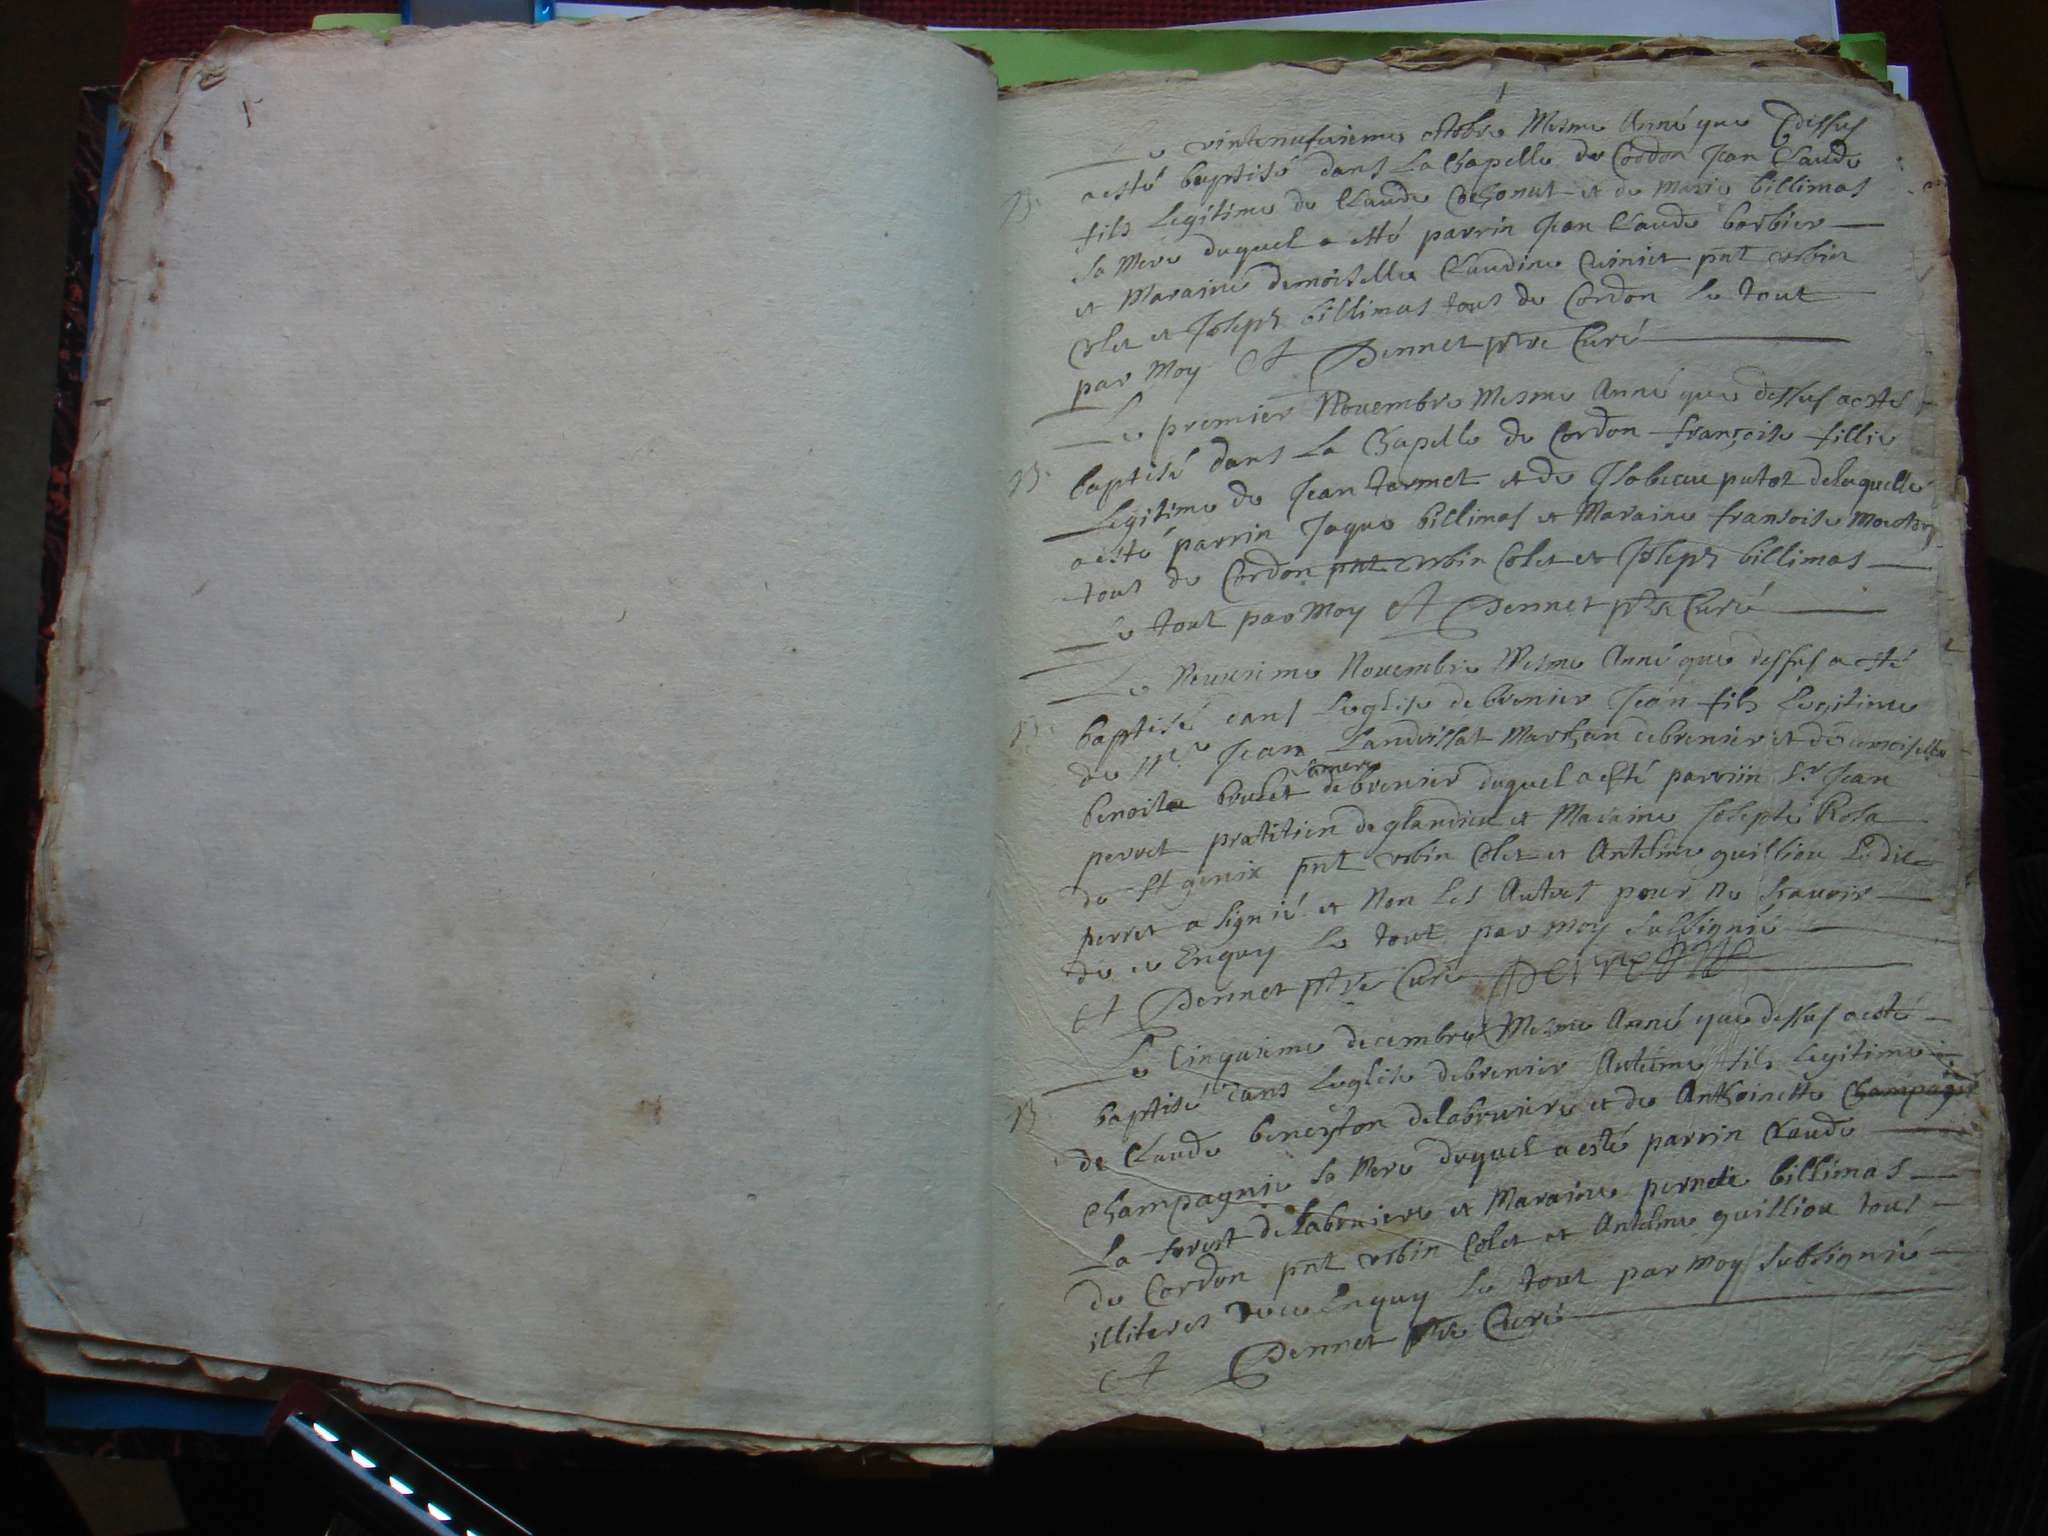 Le vintenufieme octobre Mesme Anné que dessus
B. a esté baptisé dans La Chapelle de Cordon Jean Claude
fils Legitime de Claude et de Marie billimas
sa Mere duquel a esté parrin Jean Claude barbier
et Maraine demoiselle Claudine pnt vrbin
Colet et Joseph billimas tous de Cordon Le tout
par Moy Dennet ptre Curé
Le premier Nouembre Mesme Anné que dessus a esté
B. baptisé dans La Chapelle de Cordon françoise fillie
Legitime de Jean termet et de Isabeau putot delaquelle
a esté parrin Jaque billimas et Maraine fransoise
tous de Cordon pnt vrbin Colet et Joseph billimas
Le tout par Moy Dennet ptre Curé
Le Neuuieme Nouembre Mesme Anné que dessus a esté
B. baptisé dans Leglise debrenier Jean fils Legitime
de Mr Jean Landrissat Marchan debrenier et de demoiselle
benoite brudet samere debrenier duquel a esté parriin Sr Jean
perret pratitien deglandieu et Maraine Josepte Rosa
de St genix pnt vrbin Colet et Antelme guilliou Le dit
perret a signié et Non Les Autres pour Ne scauoir
de ce Enquy Le tout par moy subsignié
Dennet ptre Curé perret
Le Cinquieme decembre Mesme Anné que dessus a esté
B baptisé dans Leglise debrenier Antelme fils Legitime
de Claude beneyton delabruiere et de Anthoinette
Champagnie sa Mere duquel a esté parrin Claude
La forest delabruiere et Maraine pernete billimas
de Cordon pnt vrbin Colet et Antelme guilliou tous
illiteres de ce Enquy Le tout par moy subsignié
Dennet ptre Curé